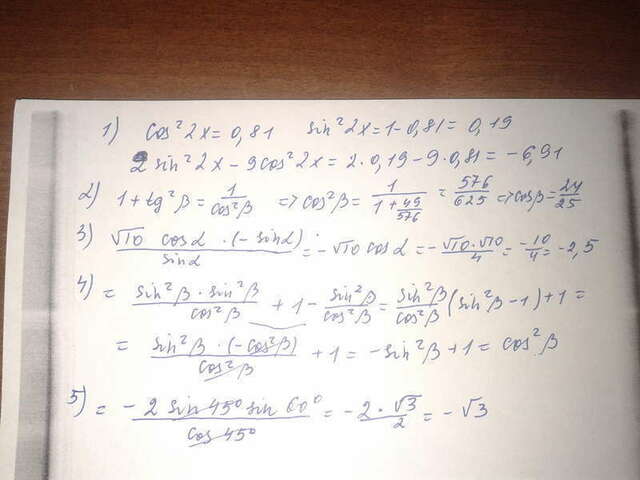 1) cos²2x = 0,81 sin²2x = 1 - 0,81 = 0,19
2 sin²2x - 9cos²2x = 2·0,19 - 9·0,81 = -6,91
2) 1 + tg²β = 1/cos²β => cos²β = 1/(1 + 49/576) = 576/625 => cosβ = 24/25
3) √10 cosα · (-sinα)/sinα = -√10 cosα = -√10·√10/4 = -10/4 = -2,5
4) = sin²β · sin²β/cos²β + 1 - sin²β/cos²β = sin²β/cos²β (sin²β - 1) + 1 =
= sin²β · (-cos²β)/cos²β + 1 = -sin²β + 1 = cos²β
5) = -2 sin 45° sin 60°/cos 45° = -2·√3/2 = -√3